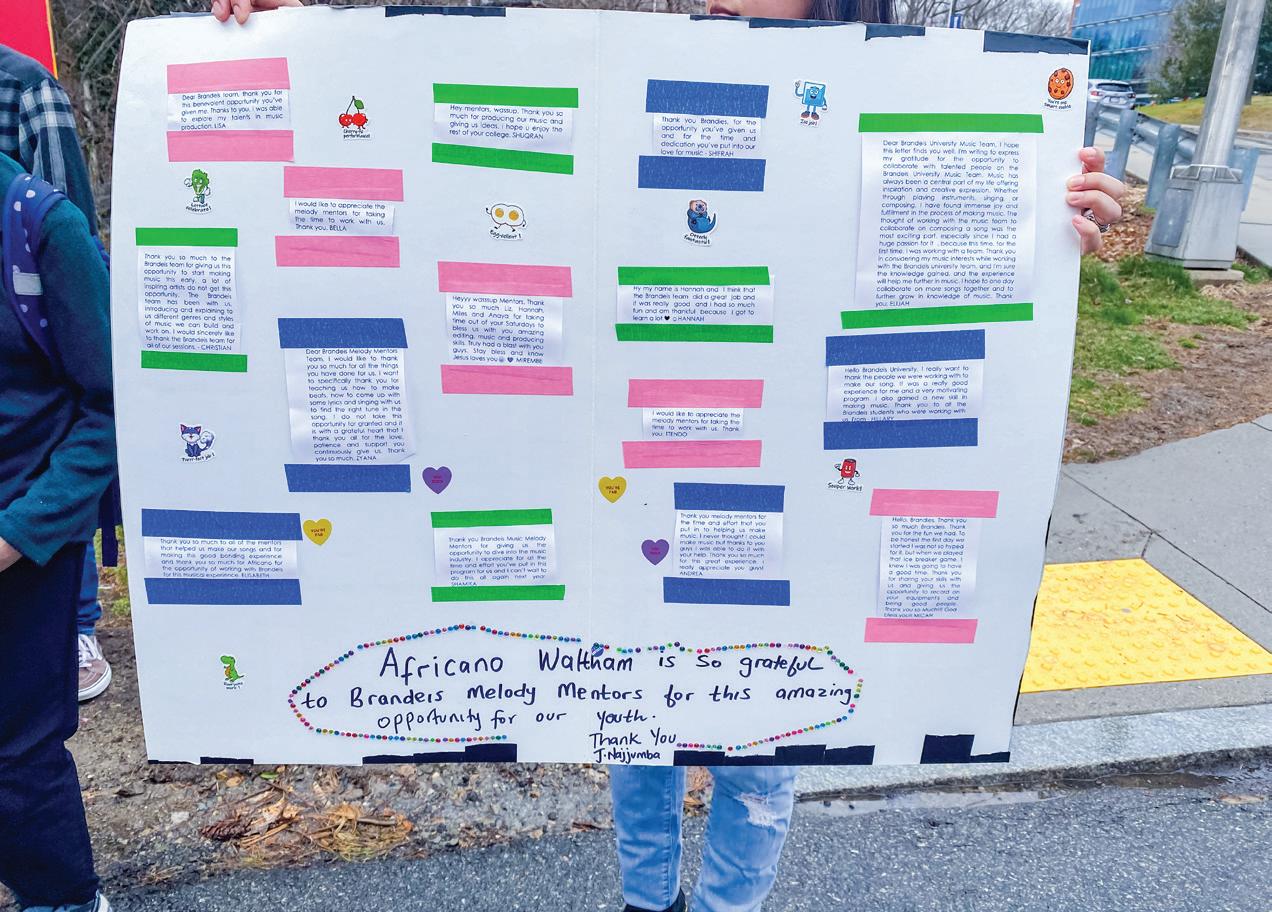 Dear Brandeis team, thank you for
this benevolent opportunity you've
given me. Thanks to you, I was able
to explore my talents in music
production. LISA
Hey mentors, wassup. Thank you so
much for producing our music and
giving us ideas. I hope u enjoy the
rest of your college. SHUQRAN
Thank you Brandies, for the
opportunity you've given us
and for the time and
dedication you've put into our
love for music - SHIFRAH
Dear Brandeis University Music Team, I hope
this letter finds you well. I'm writing to express
my gratitude for the opportunity to
collaborate with talented people on the
Brandeis University Music Team. Music has
always been a central part of my life offering
inspiration and creative expression. Whether
through playing instruments, singing, or
composing, I have found immense joy and
fulfillment in the process of making music. The
thought of working with the music team to
collaborate on composing a song was the
most exciting part, especially since I had a
huge passion for it , because this time, for the
first time, I was working with a team. Thank you
in considering my music interests while working
with the Brandeis university team, and I'm sure
the knowledge gained, and the experience
will help me further in music. I hope to one day
collaborate on more songs together and to
further grow in knowledge of music. Thank
you. ELIJAH
I would like to appreciate the
melody mentors for taking
the time to work with us.
Thank you. BELLA
Thank you so much to the
Brandeis team for giving us this
opportunity to start making
music this early, a lot of
inspiring artists do not get this
opportunity. The Brandeis
team has been with us,
introducing and explaining to
us different genres and styles
of music we can build and
work on. I would sincerely like
to thank the Brandeis team for
all of our sessions. - CHRISTIAN
Heyyy wasssup Mentors, Thank
you so much Liz, Hannah,
Miles and Anaya for taking
time out of your Saturdays to
bless us with you amazing
editing, music and producing
skills. Truly had a blast with you
guys. Stay bless and know
Jesus loves you MIREMBE
Hy my name is Hannah and I think that
the Brandeis team did a great job and
it was really good and I had so much
fun and am thankful because I got to
learn a lot ♥ HANNAH
Dear Brandeis Melody Mentors
Team, I would like to thank
you so much for all the things
you have done for us. I want
to specifically thank you for
teaching us how to make
beats, how to come up with
some lyrics and singing with us
to find the right tune in the
song. I do not take this
opportunity for granted and it
is with a grateful heart that I
thank you all for the love,
patience and support you
continuously give us. Thank
you so much. ZYANA
Hello Brandeis University, I really want to
thank the people we were working with to
make our song. It was a really good
experience for me and a very motivating
program. I also gained a new skill in
making music. Thank you to all the
Brandeis students who were working with
us. From : HILLARY
I would like to appreciate the
melody mentors for taking the
time to work with us. Thank
you. ETENDO
Thank you so much to all of the mentors
that helped us make our songs and for
making this good bonding experience
and thank you so much for Africano for
the opportunity of working with Brandeis
for this musical experience. ELISABETH
Thank you Brandeis Music Melody
Mentors for giving us the
opportunity to dive into the music
industry. I appreciate for all the
time and effort you've put in this
program for us and I can't wait to
do this all again next year.
SHAMIKA
Thank you melody mentors for
the time and effort that you
put in to helping us make
music. I never thought I could
make music but thanks to you
guys I was able to do it with
your help. Thank you so much
for this great experience. I
really appreciate you guys!
ANDREA
Hello, Brandies. Thank you
so much Brandeis. Thank
you for the fun we had. To
be honest the first day we
started I was not so hyped
for it, but when we played
that ice breaker game. I
knew I was going to have
a good time. Thank you
for sharing your skills with
us and giving us the
opportunity to record on
your equipments and
being good people.
Thank you so Much!!! God
bless you!! MICAH
Egg-cellent !
Otterly
fantastic!
Purrr-fect job !
Souper Work!
YOU'RE
FAB
YOU'RE
FAB
Africano Waltham is so grateful
to Brandeis Melody Mentors for this amazing
opportunity for our youth.
Thank You
J.Najjumba